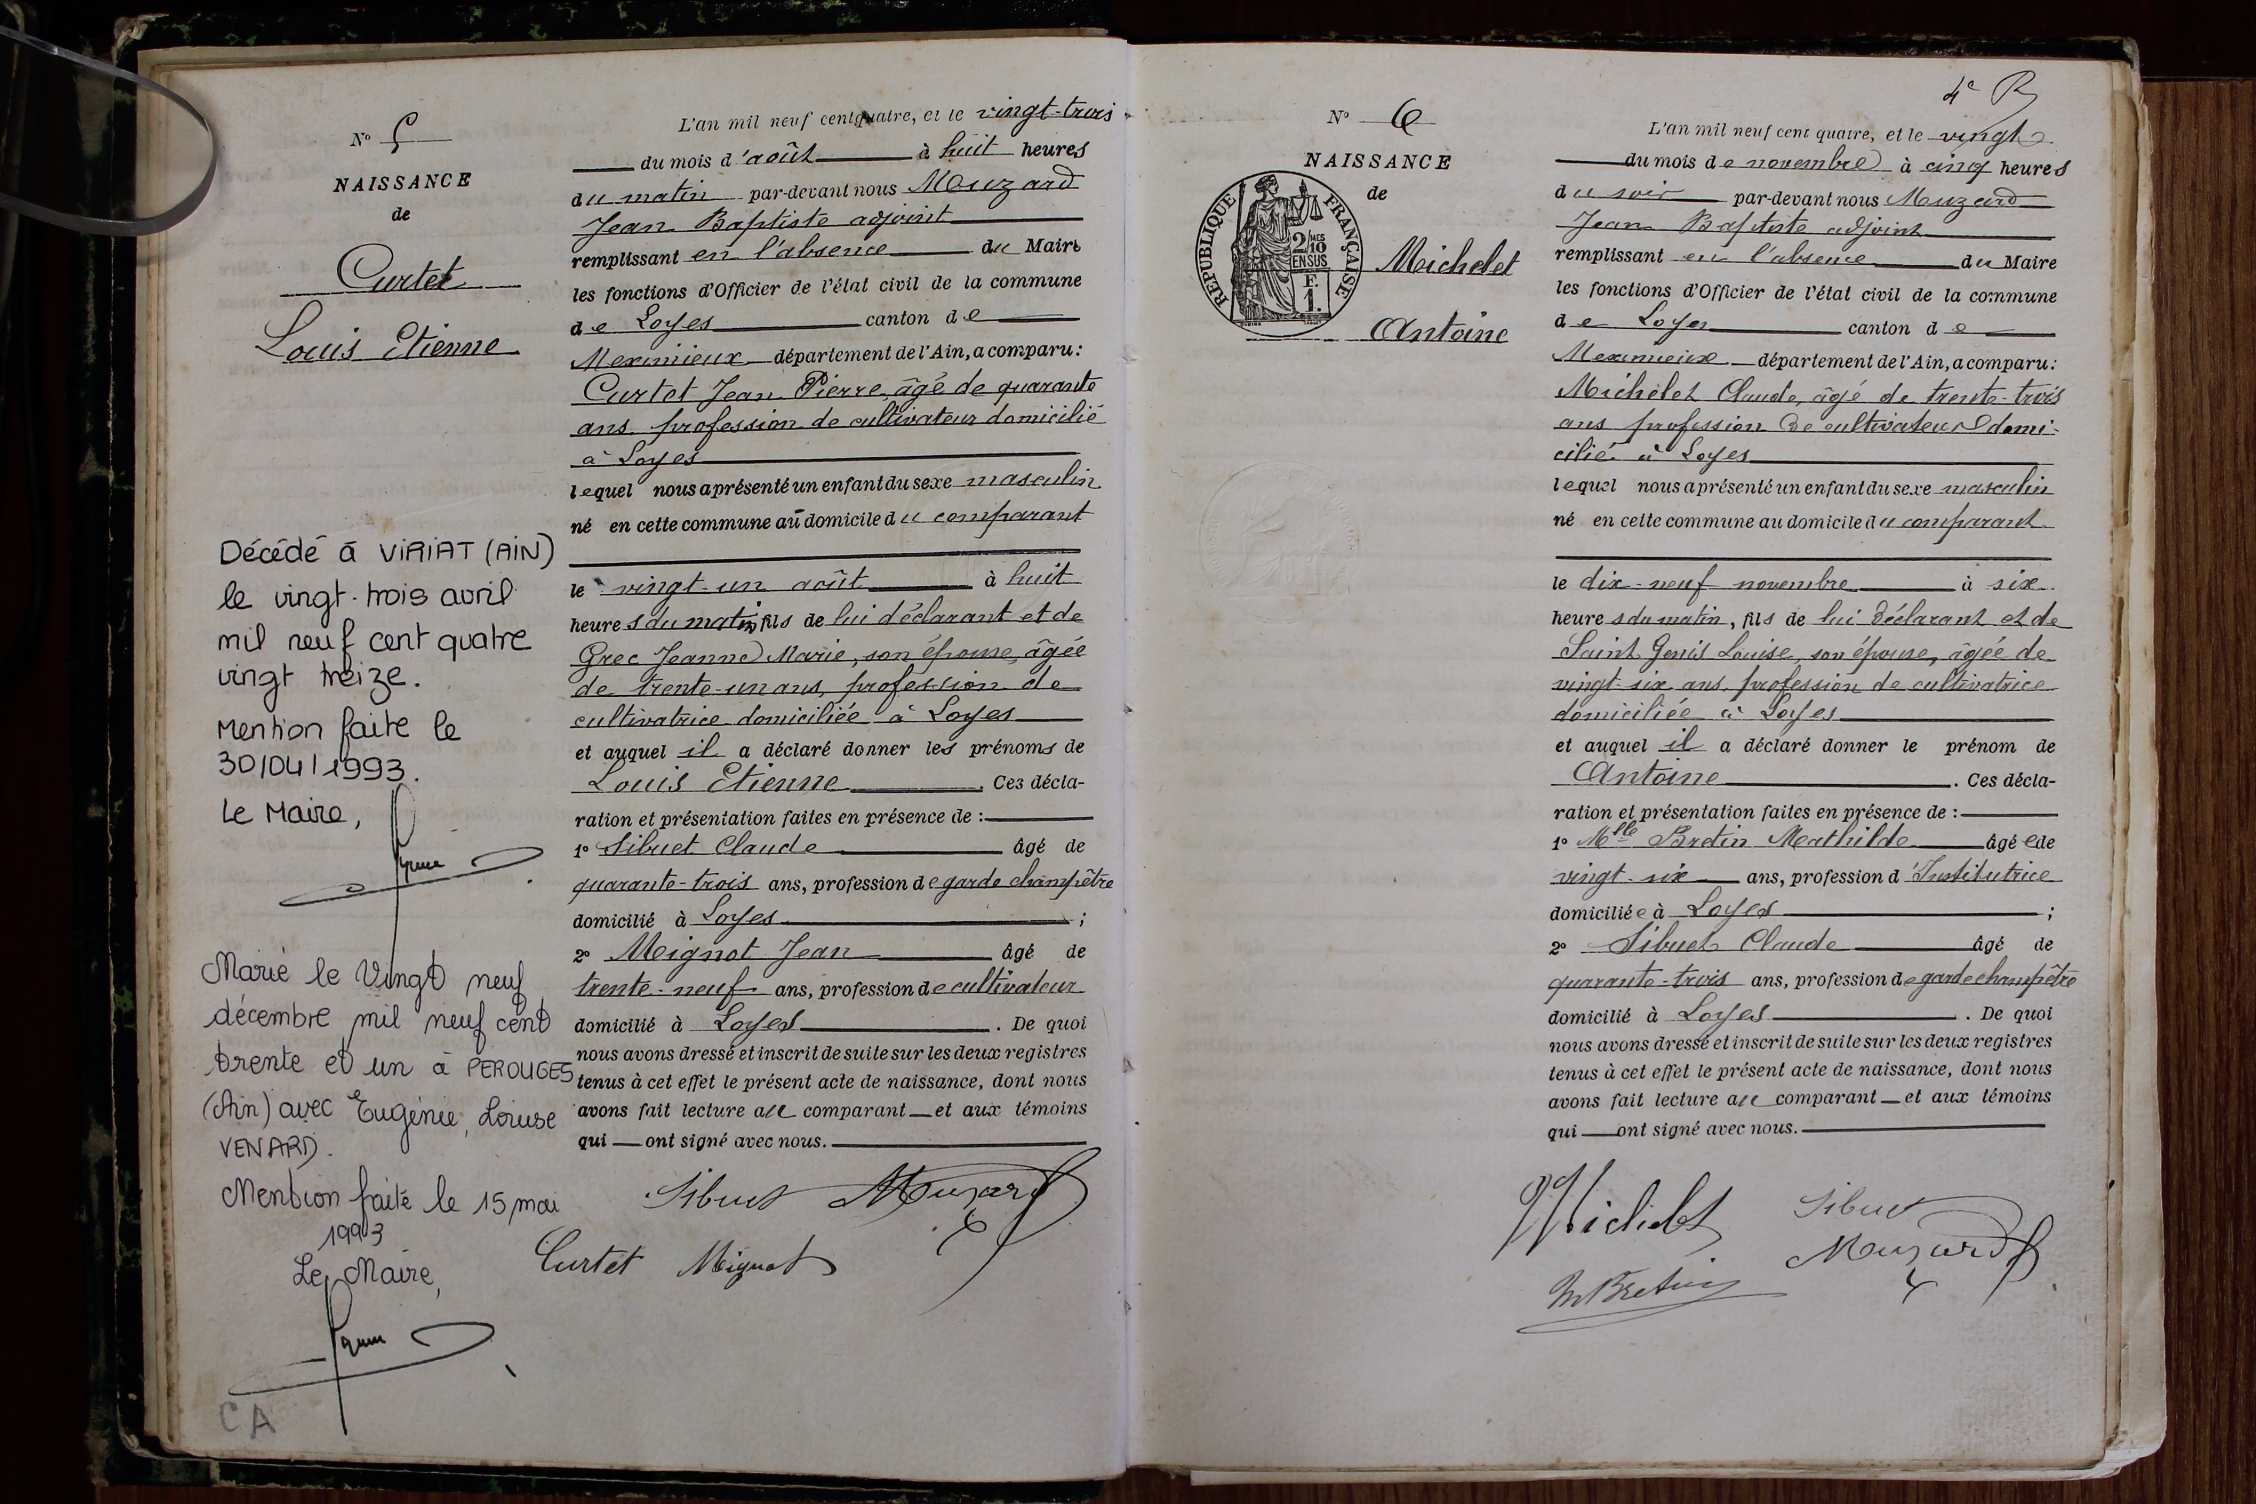 N° 5
NAISSANCE
de
Curtet
Louis Etienne
Décédé à VIRIAT (AIN)
le vingt-trois avril
mil neuf cent quatre
vingt treize.
Mention faite le
30/04/1993.
Le Maire,
Marié le Vingt neuf
décembre mil neuf cent
trente et un à PEROUGES
(Ain) avec Eugénie, Louise
VENARD.
Mention faite le 15 mai
1993
Le Maire,
CA
L'an mil neuf cent quatre, et le vingt-trois
du mois d'août à huit heures
du matin par-devant nous Mouzard
Jean Baptiste adjoint
remplissant en l'absence du Maire
les fonctions d'Officier de l'état civil de la commune
de Loyes canton de
Meximieux département de l'Ain, a comparu:
Curtet Jean Pierre, âgé de quarante
ans, profession de cultivateur domicilié
à Loyes
lequel nous a présenté un enfant du sexe masculin
né en cette commune au domicile du comparant
le vingt-un août à huit
heures du matin, fils de lui déclarant et de
Grec Jeanne Marie, son épouse, âgée
de trente-un ans, profession de
cultivatrice domiciliée à Loyes
et auquel il a déclaré donner les prénoms de
Louis Etienne. Ces décla-
ration et présentation faites en présence de :
1° Sibuet Claude âgé de
quarante-trois ans, profession de garde champêtre
domicilié à Loyes ;
2° Mignot Jean âgé de
trente-neuf ans, profession de cultivateur
domicilié à Loyes. De quoi
nous avons dressé et inscrit de suite sur les deux registres
tenus à cet effet le présent acte de naissance, dont nous
avons fait lecture au comparant et aux témoins
qui ont signé avec nous.
Sibuet Mouzard
Curtet Mignot
4e B
N° 6
NAISSANCE
de
RÉPUBLIQUE FRANÇAISE
2/10 MES
EN SUS
F.
1.
Michelet
Antoine
L'an mil neuf cent quatre, et le vingt
du mois de novembre à cinq heures
du soir par-devant nous Mouzard
Jean Baptiste adjoint
remplissant en l'absence du Maire
les fonctions d'Officier de l'état civil de la commune
de Loyes canton de
Meximieux département de l'Ain, a comparu:
Michelet Claude, âgé de trente-trois
ans profession de cultivateur domi-
cilié à Loyes
lequel nous a présenté un enfant du sexe masculin
né en cette commune au domicile du comparant
le dix-neuf novembre à six
heures du matin, fils de lui déclarant et de
Saint Genis Louise, son épouse, âgée de
vingt-six ans, profession de cultivatrice
domiciliée à Loyes
et auquel il a déclaré donner le prénom de
Antoine. Ces décla-
ration et présentation faites en présence de :
1° Mlle Bretin Mathilde âgée de
vingt-six ans, profession d'Institutrice
domiciliée à Loyes ;
2° Sibuet Claude âgé de
quarante-trois ans, profession de garde champêtre
domicilié à Loyes. De quoi
nous avons dressé et inscrit de suite sur les deux registres
tenus à cet effet le présent acte de naissance, dont nous
avons fait lecture au comparant et aux témoins
qui ont signé avec nous.
Michelet Sibuet
Mouzard
M Bretin